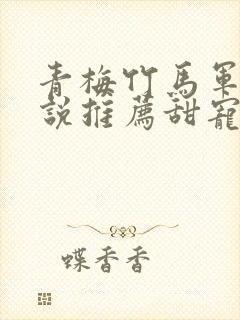 青梅竹馬軍
說推薦甜寵
蝶香香